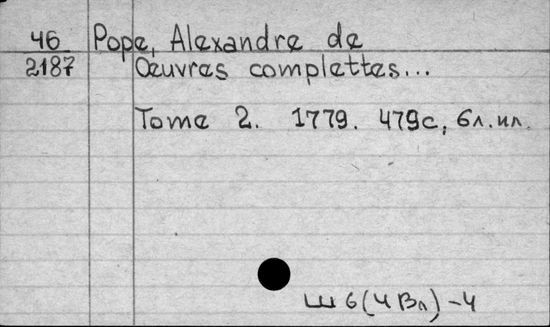 46 Pope, Alexandre de
2187 Œuvres complettes...
Tome 2. 1779. 479с, 6л.ил.
Ш6(4Вл)-4